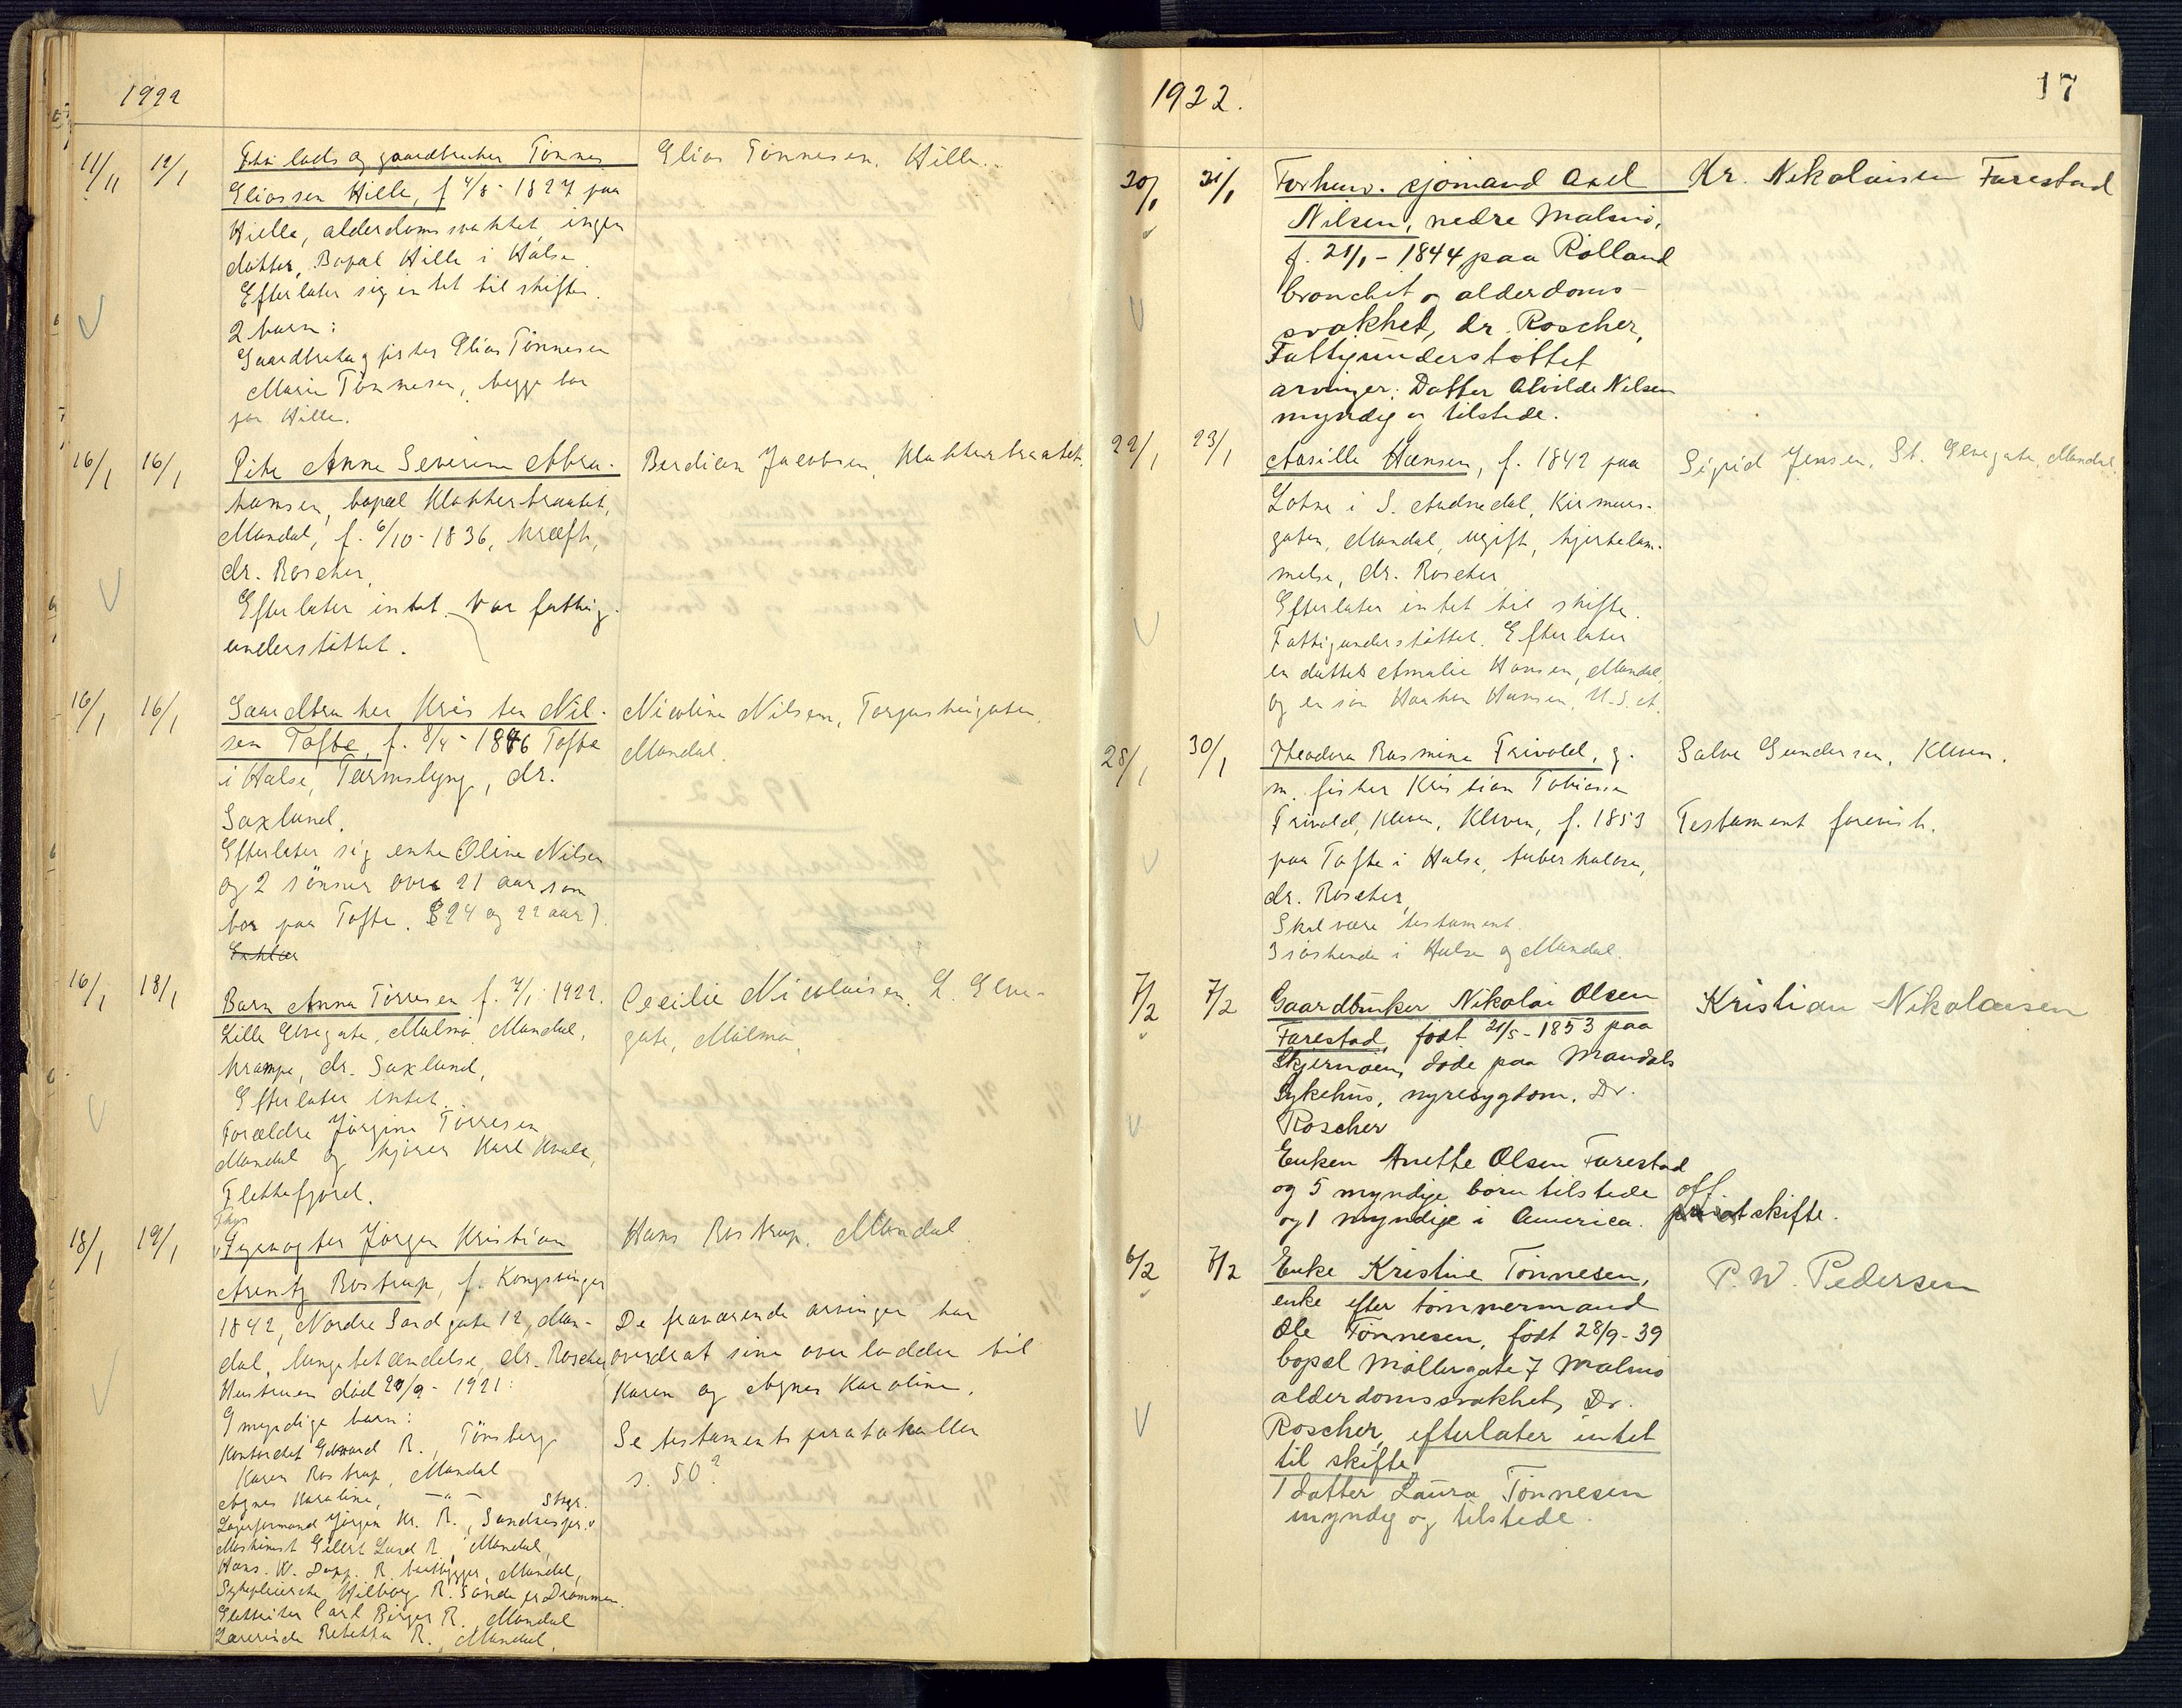 1922
11/11 12/1 Elias Tønnesen, Hille.
Eliassen Hille, f 4/8 - 1827 paa
Hille, alderdomssvakhet, ingen
doktor, Bopæl Hille i Halse
Efterlater sig intet til skifte.
2 barn:
Gaardbruker og fisker Elias Tønnesen
Marie Tønnesen, begge bor
paa Hille.
16/1 16/1 Pike Anne Severine Abra- Berdien Jacobsen, Klokkerbraatet.
hamsen, bopæl Klokkerbraatet,
Mandal, f. 6/10 - 1836, kræft,
dr. Roscher,
Efterlater intet. Var fattig-
understøttet.
16/1 16/1 Gaardbruker Kristen Nil- Nicoline Nilsen, Torjusheigaten
sen Tofte, f. 8/4 - 1846 Tofte Mandal.
i Halse, Tarmslyng, dr.
Saxlund.
Efterlater sig enke Oline Nilsen
og 2 sønner over 21 aar som
bor paa Tofte. (24 og 22 aar).
16/1 18/1 Barn Anna Tørresen f. 4/1 1922. Cecilie Nicolaisen, L. Elve-
Lille Elvegate, Malmø, Mandal, gate, Malmø,
krampe, dr. Saxlund,
Efterlater intet.
Forældre Jørgine Tørresen
Mandal og kjører Karl Kvale,
Flekkefjord.
18/1 19/1 Fyrvogter Jørgen Kristian Hans Rostrup, Mandal.
Arentz Rostrup, f. Kongsvinger
1842, Nordre Sandgate 12, Man- De fraværende arvinger har
dal, lungebetændelse, dr. Roscher overdrat sine arvelodder til
Hustruen død 20/9 - 1921: Karen og Agnes Karoline.
9 myndige barn: Se testamentsprotokollen
Kontorchef Edward R., Tønsberg s. 50?
Karen Rostrup, Mandal
Agnes Karoline, —"—
Lagerformand Jørgen Kr. R.,
Maskinist Eilert Lund R., Mandal,
Hans. W. Dopp. R. baatbygger, Mandal,
Sykepleierske Hilborg R. Sande pr Drammen.
Carl Birger R., Mandal
Lærerinde Rebekka R., Mandal.
1922. 17
20/1 21/1 Forhenv. sjømand Axel Kr. Nikolaisen Farestad
Nilsen, nedre Malmø,
f. 21/1 - 1844 paa Rølland
bronchit og alderdoms-
svakhet, dr. Roscher,
Fattigunderstøttet
arvinger: Datter Alvilde Nilsen
myndig og tilstede.
22/1 23/1 Aasille Hansen, f. 1842 paa Sigrid Jensen, St. Elvegate, Mandal.
i S. Audnedal, Kirmus-
gaten, Mandal, ugift, hjertelam-
melse, dr. Roscher
Efterlater intet til skifte.
Fattigunderstøttet. Efterlater
en datter Amalie Hansen, Mandal,
og en søn Haakon Hansen, U.S.A.
28/1 30/1 Theodora Rasmine Frivold, g. Salve Gundersen, Kleven.
m. fisker Kristian Tobiassen
Frivold, Kleven, Kleven, f. 1853 Testament forevist.
paa Tofte i Halse, tuberkulose,
dr. Roscher,
Skal være testament.
3 søskende i Halse og Mandal.
7/2 7/2 Gaardbruker Nikolai Olsen Kristian Nikolaisen
Farestad, født 21/5 - 1853 paa
Skjernøen, døde paa Mandals
Sykehus, nyresygdom, Dr.
Roscher
Enken Anette Olsen Farestad
og 5 myndige born tilstede off
og 1 myndige i America. privat skifte.
6/2 7/2 Enke Kristine Tønnesen, P. W. Pedersen
enke efter tømmermand
Ole Tønnesen, født 28/9 - 39
bopæl Møllergate 7 Malmø
alderdomssvakhet, Dr.
Roscher, efterlater intet
til skifte
1 datter Laura Tønnesen
myndig og tilstede.